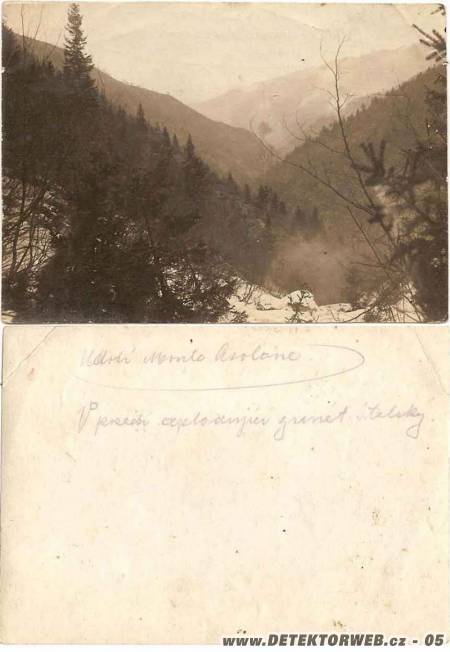 Údolí Monte Asolone
V pozadí explodující granát italský.
www.DETEKTORWEB.cz - 05